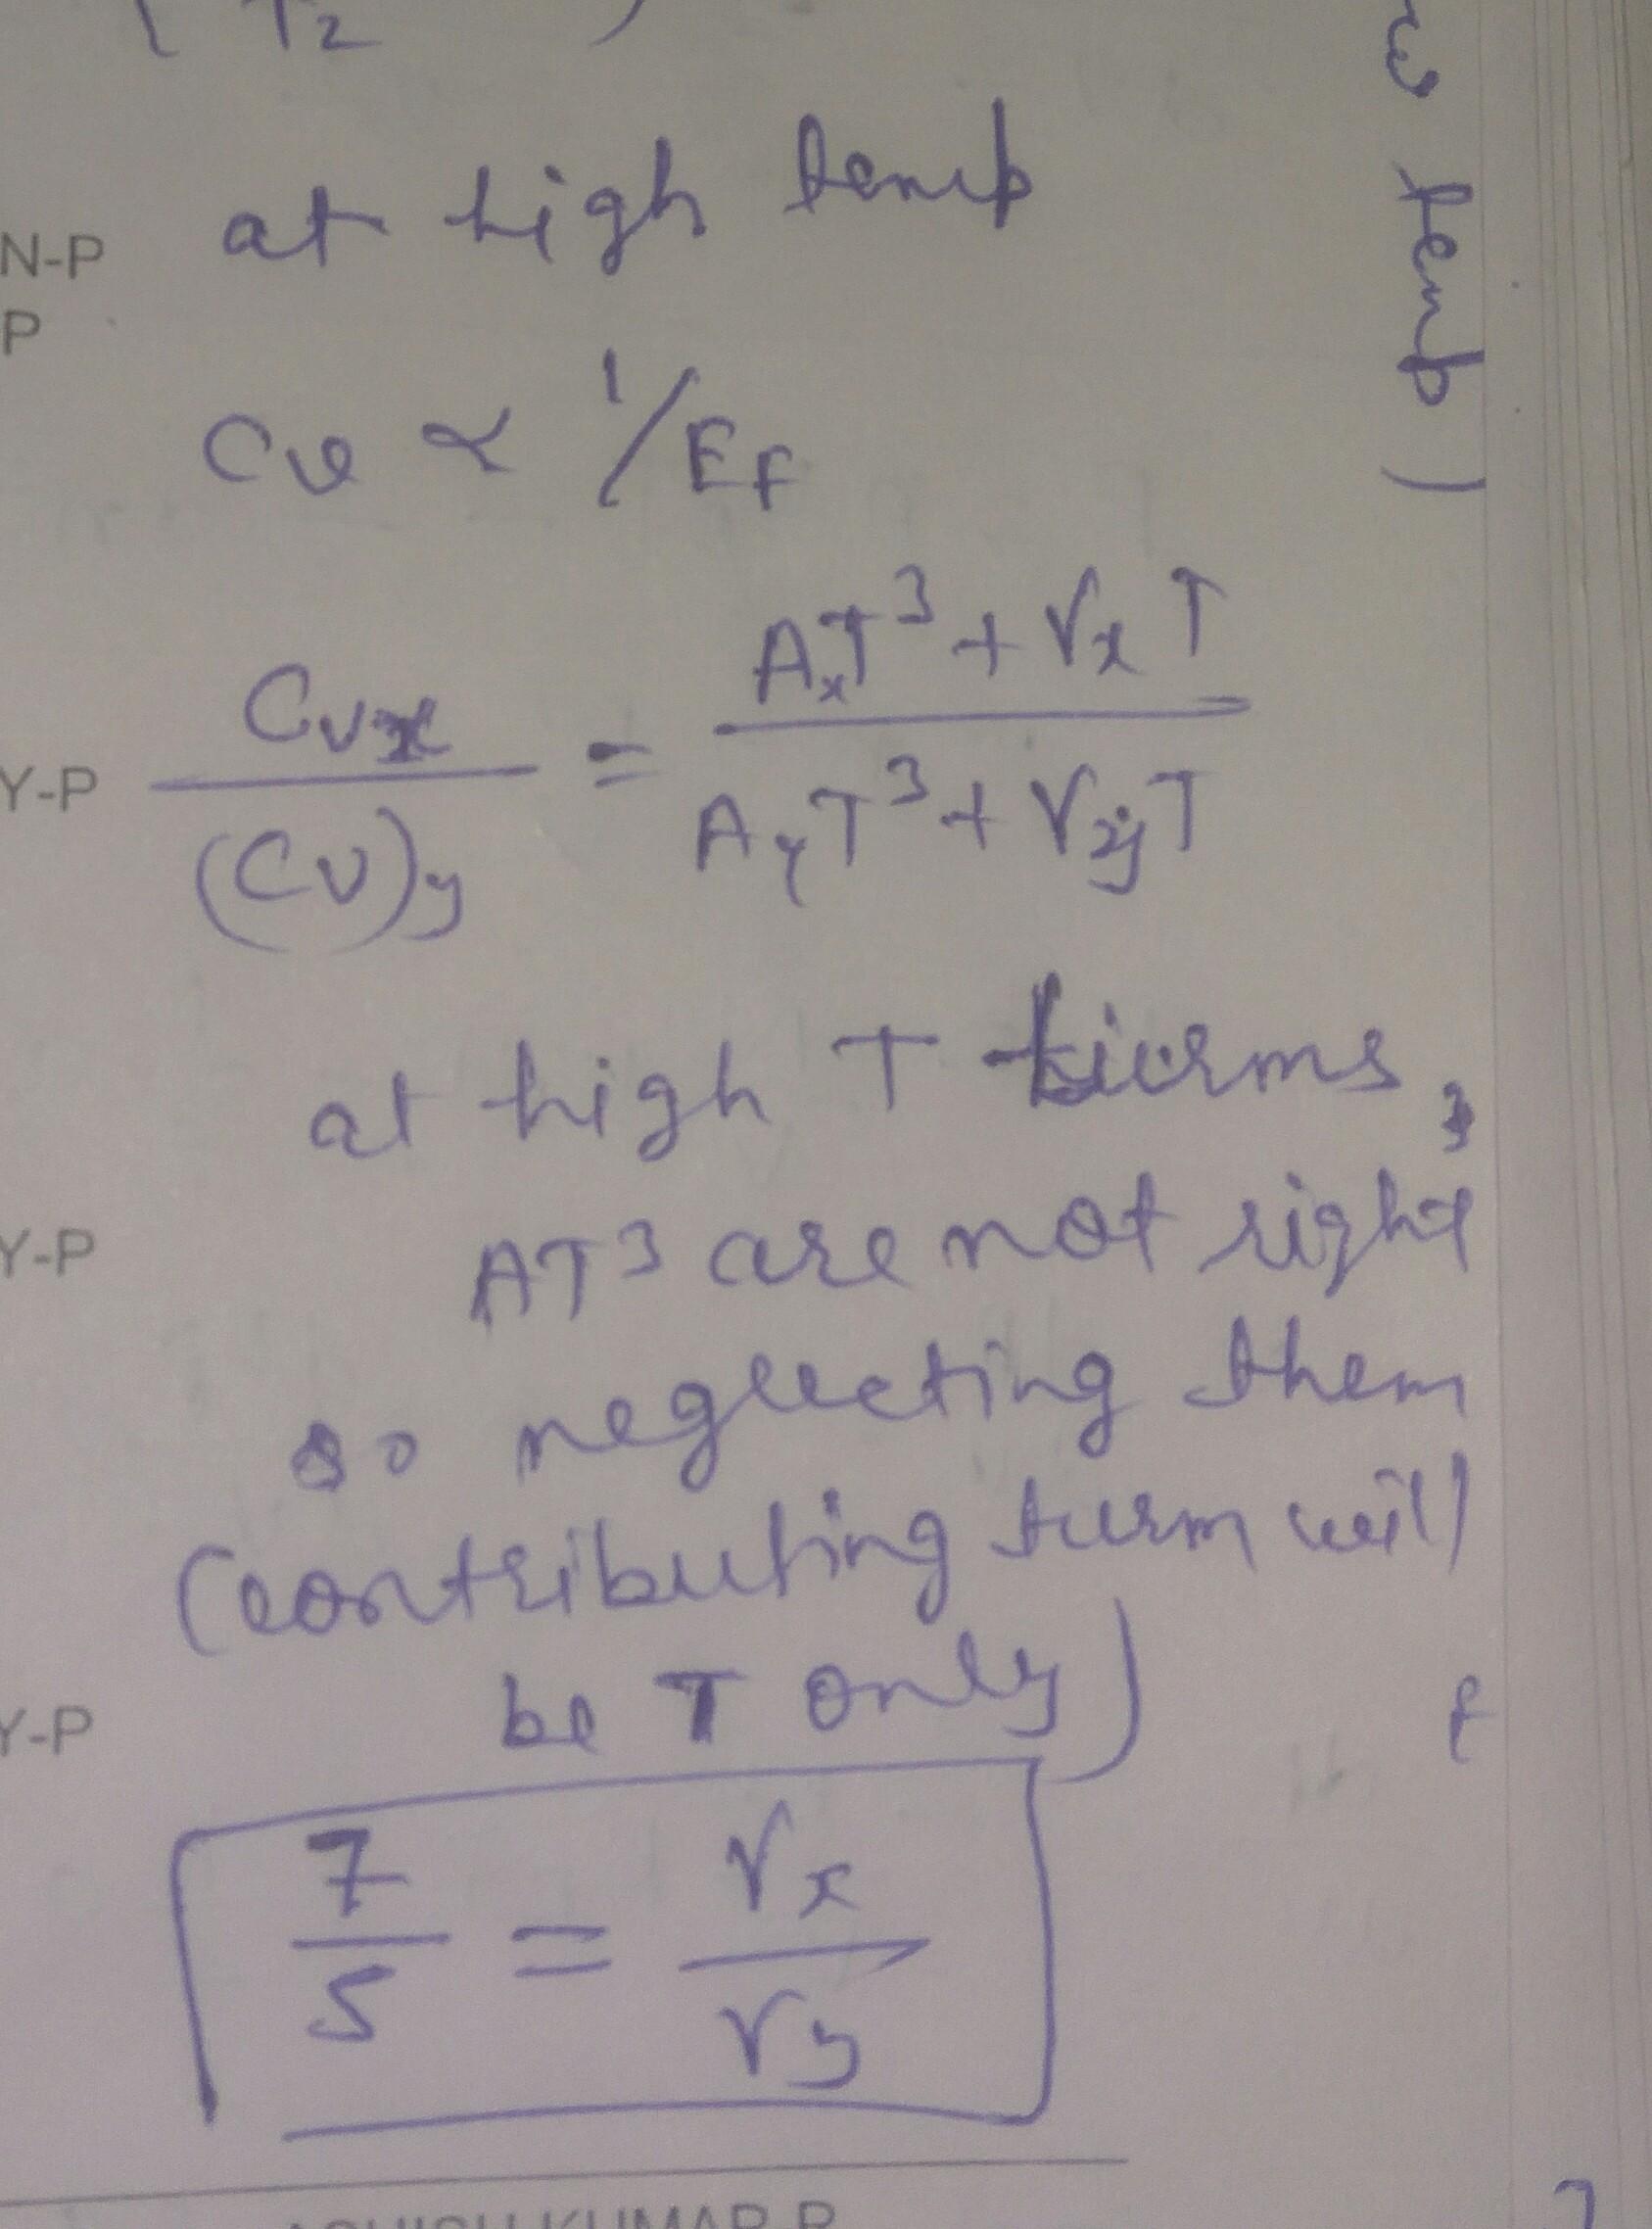 T2 )
N-P
P
at high temp
Cv ∝ 1/EF
Cvx / (Cv)y = AxT³ + γxT / AyT³ + γyT
Y-P
at high T terms,
AT³ are not right
Y-P
so neglecting them
(contributing term will
be T only)
Y-P
7/5 = γx/γy
temp)
KUMAR P